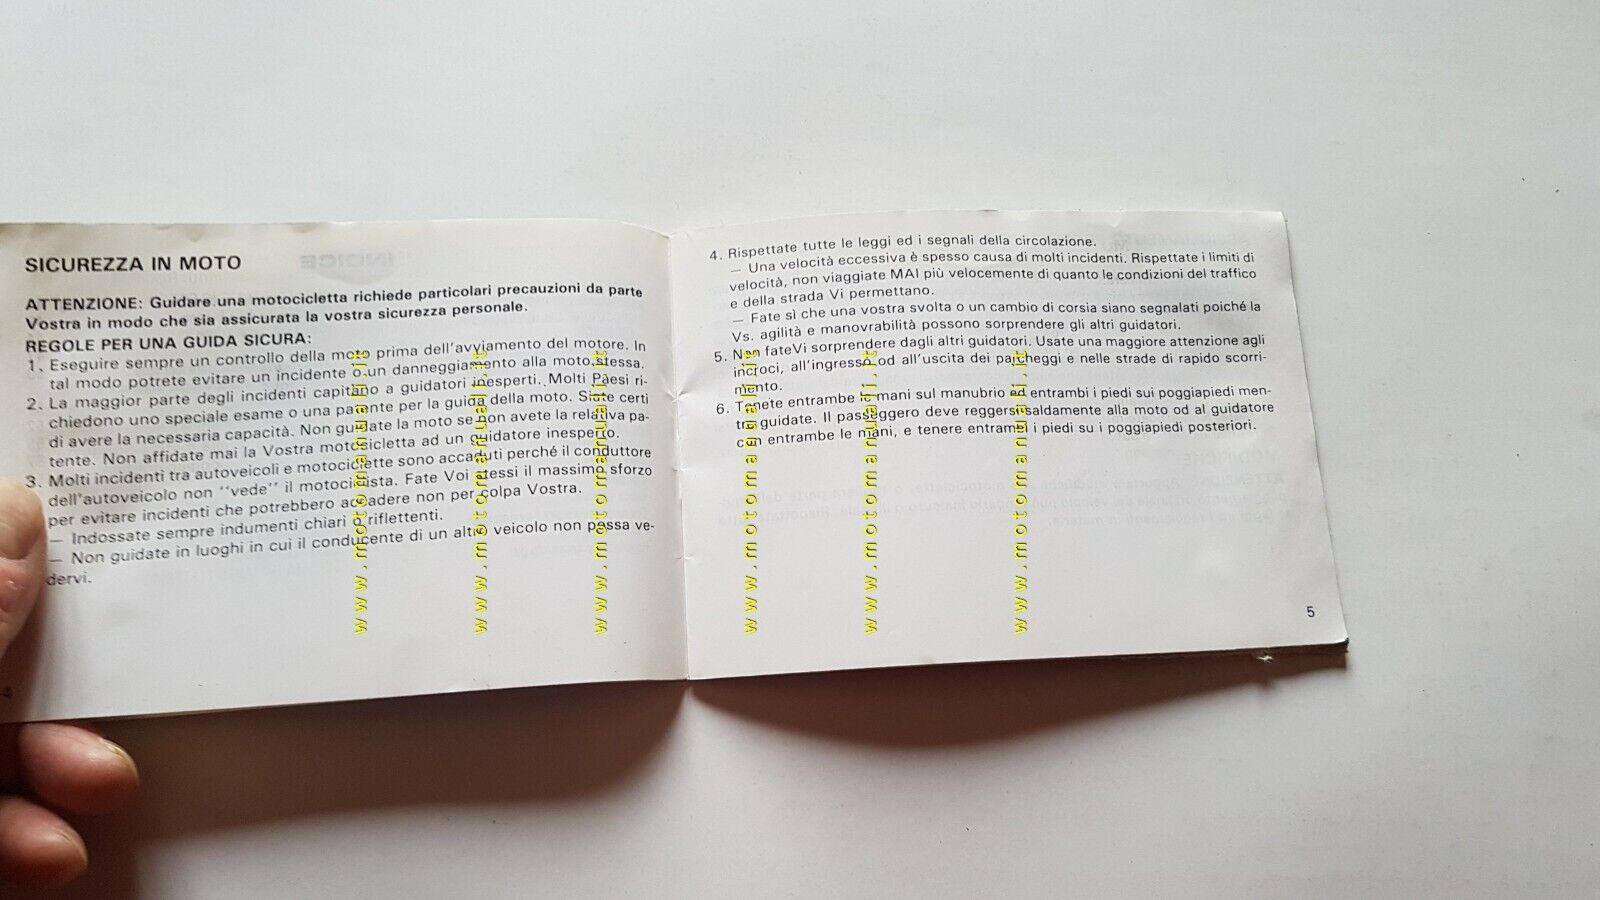 SICUREZZA IN MOTO
ATTENZIONE: Guidare una motocicletta richiede particolari precauzioni da parte
Vostra in modo che sia assicurata la vostra sicurezza personale.
REGOLE PER UNA GUIDA SICURA:
1. Eseguire sempre un controllo della moto prima dell'avviamento del motore. In
tal modo potrete evitare un incidente o un danneggiamento alla moto stessa.
2. La maggior parte degli incidenti capitano a guidatori inesperti. Molti Paesi ri-
chiedono uno speciale esame o una patente per la guida della moto. Siate certi
di avere la necessaria capacità. Non guidate la moto se non avete la relativa pa-
tente. Non affidate mai la Vostra motocicletta ad un guidatore inesperto.
3. Molti incidenti tra autoveicoli e motociclette sono accaduti perché il conduttore
dell'autoveicolo non "vede" il motociclista. Fate Voi stessi il massimo sforzo
per evitare incidenti che potrebbero accadere non per colpa Vostra.
— Indossate sempre indumenti chiari o riflettenti.
— Non guidate in luoghi in cui il conducente di un altro veicolo non possa ve-
dervi.
4
4. Rispettate tutte le leggi ed i segnali della circolazione.
— Una velocità eccessiva è spesso causa di molti incidenti. Rispettate i limiti di
velocità, non viaggiate MAI più velocemente di quanto le condizioni del traffico
e della strada Vi permettano.
— Fate sì che una vostra svolta o un cambio di corsia siano segnalati poiché la
Vs. agilità e manovrabilità possono sorprendere gli altri guidatori.
5. Non fateVi sorprendere dagli altri guidatori. Usate una maggiore attenzione agli
incroci, all'ingresso od all'uscita dei parcheggi e nelle strade di rapido scorri-
mento.
6. Tenete entrambe le mani sul manubrio ed entrambi i piedi sui poggiapiedi men-
tre guidate. Il passeggero deve reggersi saldamente alla moto od al guidatore
con entrambe le mani, e tenere entrambi i piedi su i poggiapiedi posteriori.
5
www.motomanuali.it
www.motomanuali.it
www.motomanuali.it
www.motomanuali.it
www.motomanuali.it
www.motomanuali.it